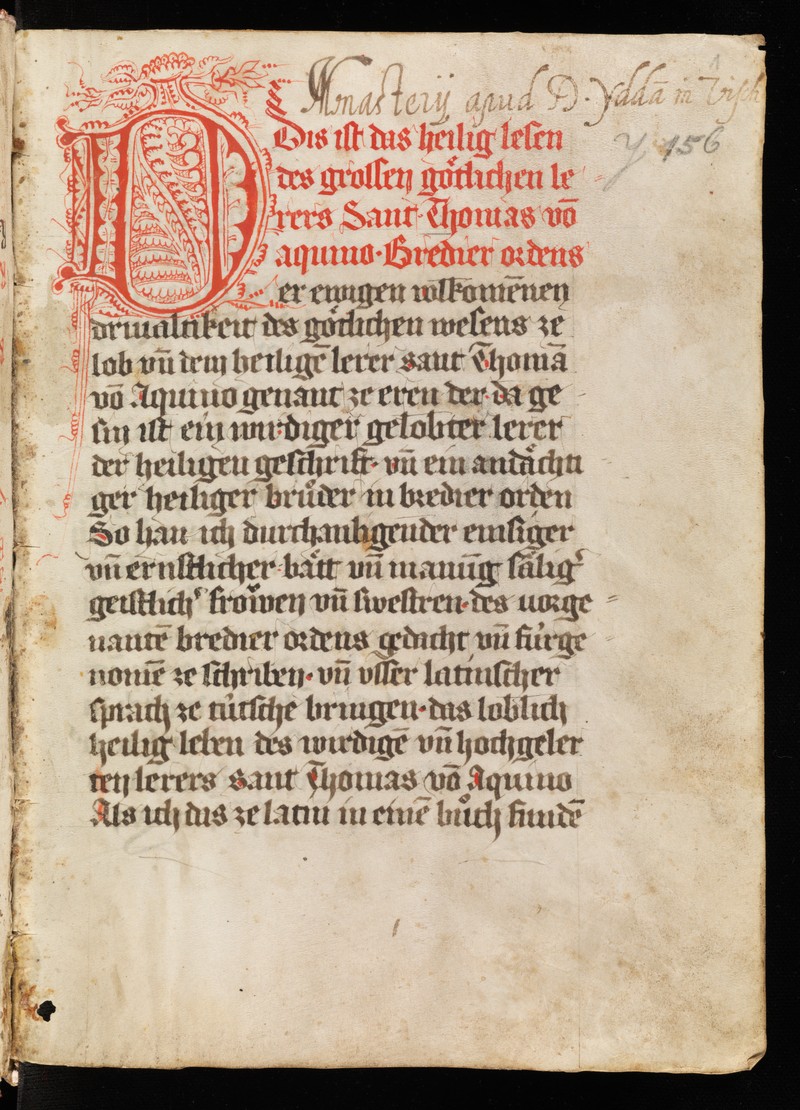 Monasterij apud D. Yddā in Visch
Dis ist das heilig lesen
Y 156
des grossen gǒtlichen le
rers Sant Thomas vō
aquino · Bredier ordens
er ewigen volkomēnen
drivaltikeit des gǒtlichen wesens ze
lob vn̄ dem heiligē lerer sant Thomā
vō Aquino genant ze eren der da ge
sin ist ein wirdiger gelobter lerer
der heiligen geschrift · vn̄ ein andächti
ger heiliger brůder in bredier orden
So han ich durch anligender emsiger
vn̄ ernstlicher bätt vn̄ manūg sälig᷒
geistlich᷒ frowen vn̄ swestren · des vorge
nantē bredier ordens gedacht vn̄ fürge
nomē ze schriben · vn̄ vsser latinischer
sprach ze tütsche bringen · das loblich
heilig leben des wirdigē vn̄ hochgeler
ten lerers sant Thomas vō Aquino
Als ich das ze latin in einē bůch findē